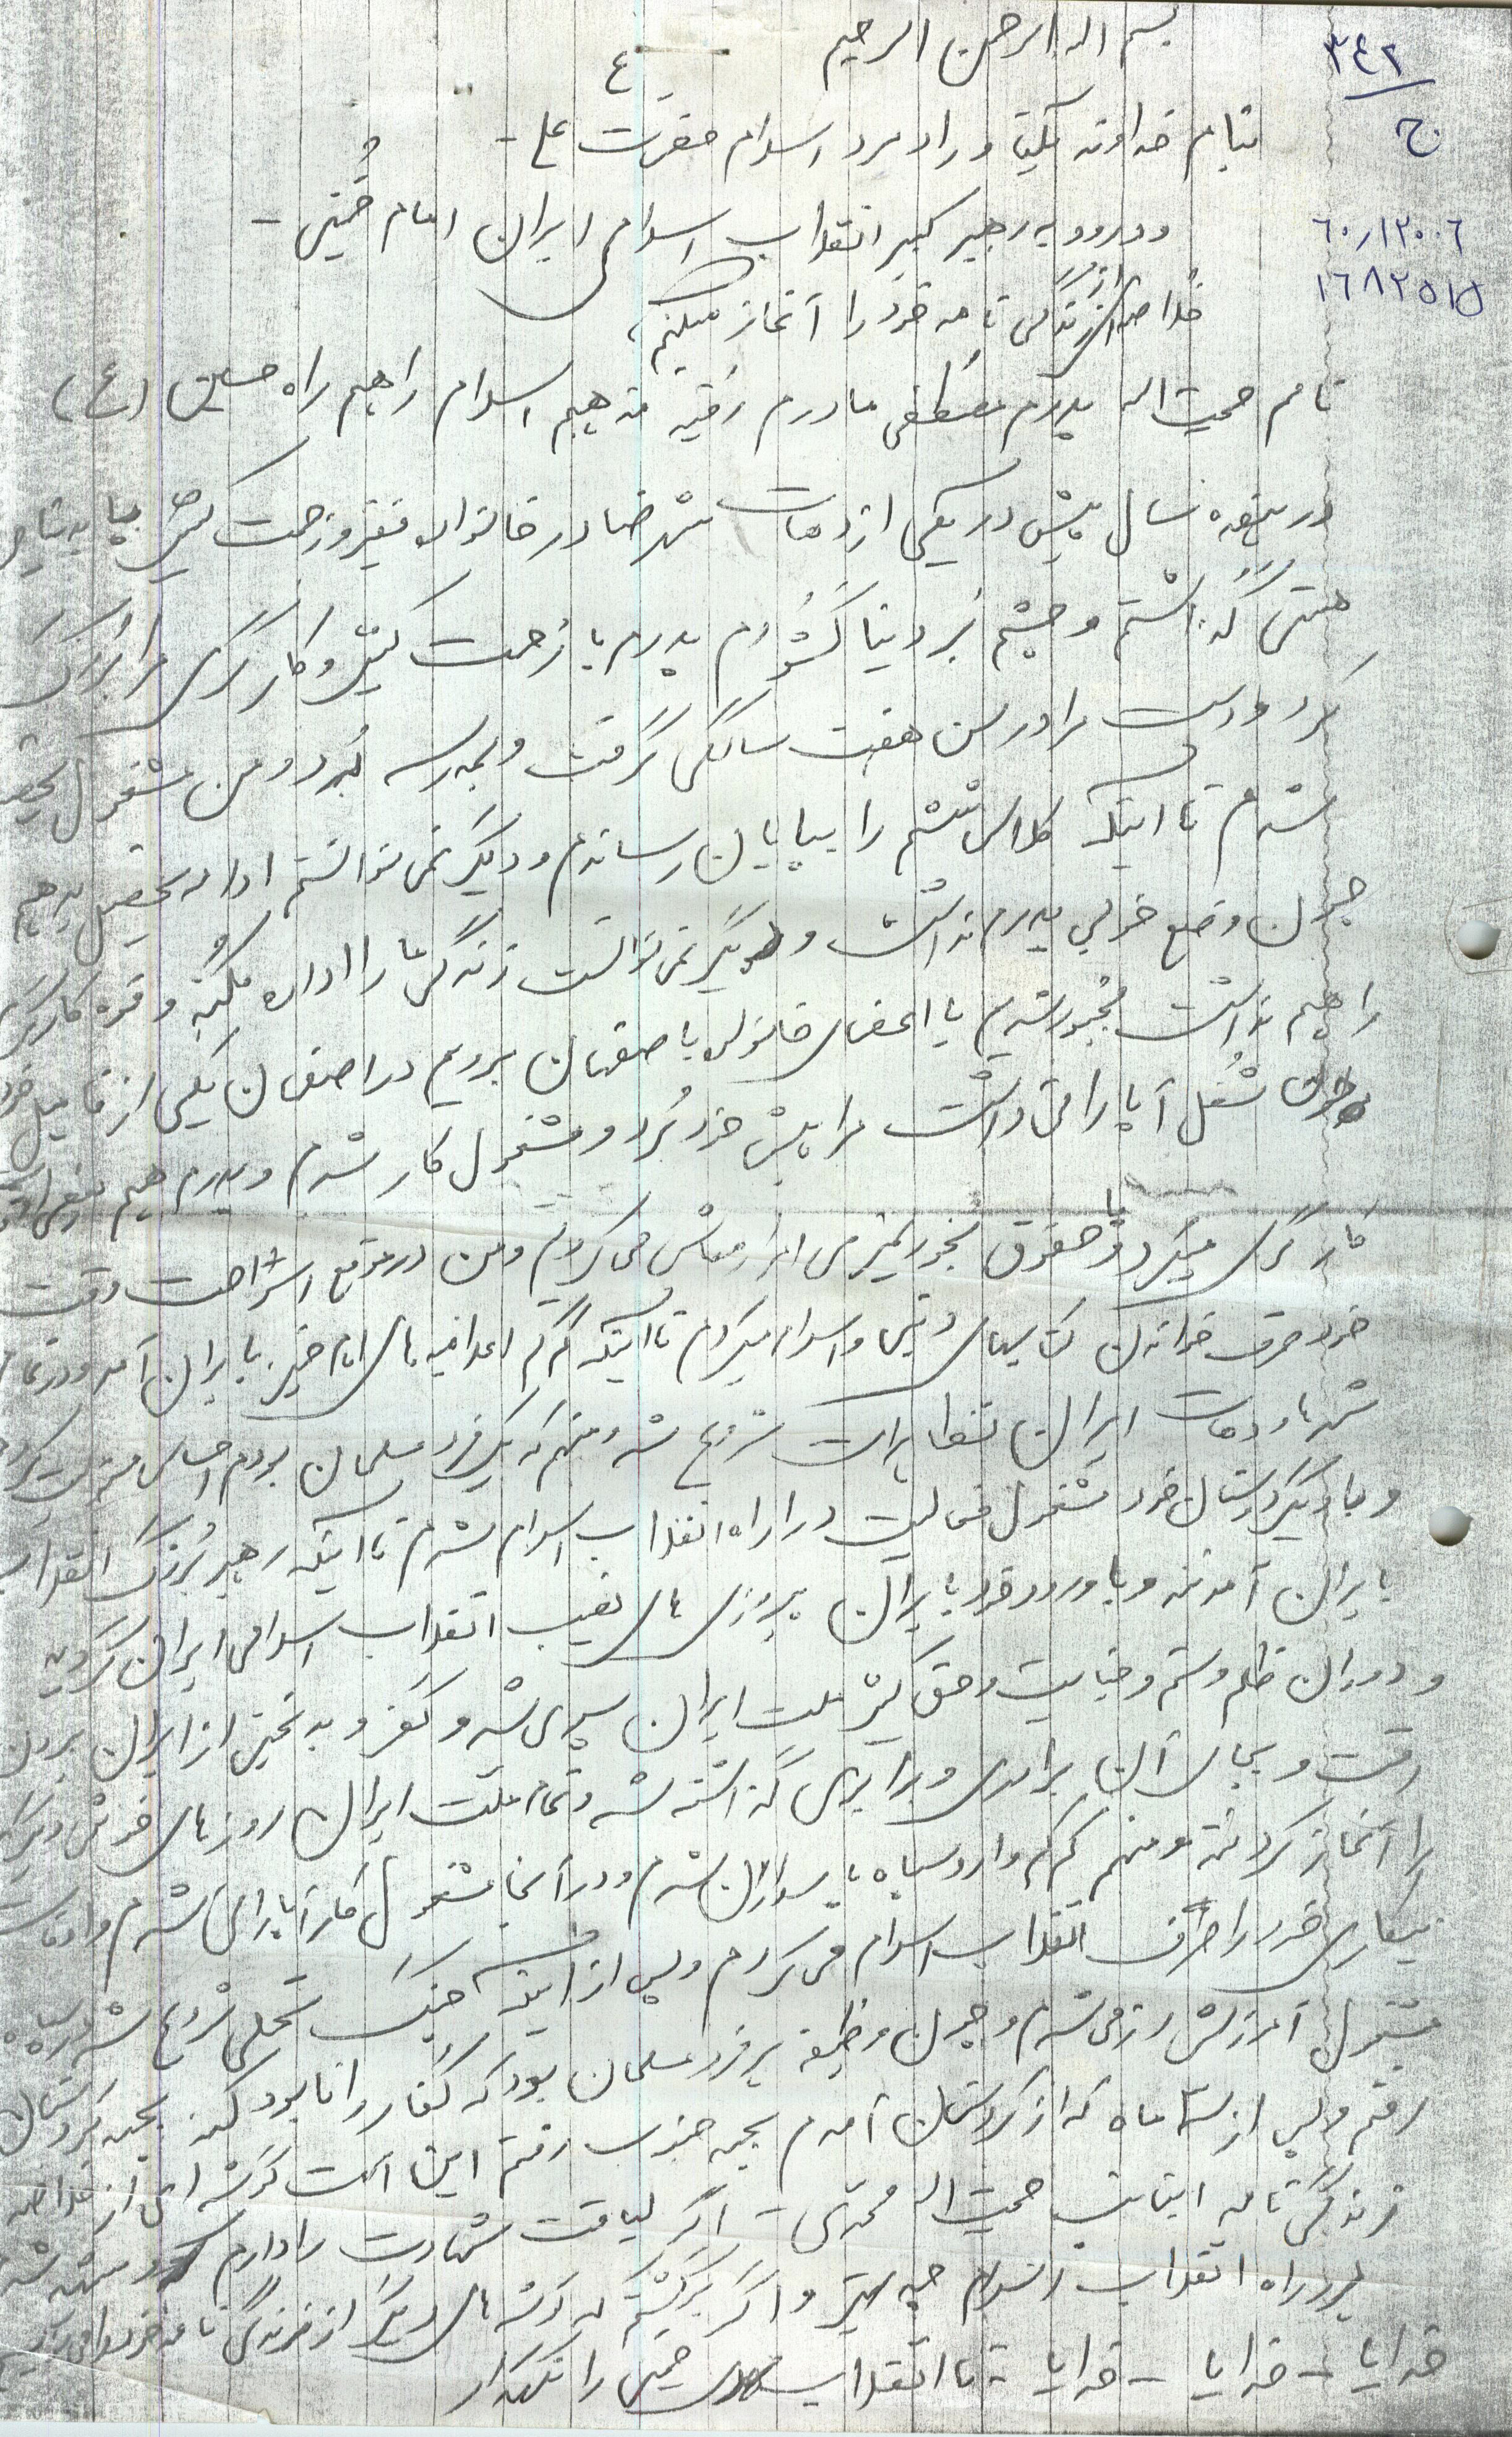 بسم اله الرحمن الرحیم
٣٤٢
ج
٤
بنام خداوند یکتا و راد مرد اسلام حضرت علی -
و درود به رهبر کبیر انقلاب اسلامی ایران امام خمینی -
٦٠/١٢٠٠٦
١٦٨٢٥١٥
خلاصه از زندگی نامه خود را آغاز میکنم،
نامم حمیت اله پدرم مصطفی مادرم رقیه مذهبم اسلام راهم راه حسین (ع)
در هفده سال پیش در یکی از دهات شهرضا در خانواده فقیر و زحمت کش پا به
هستی گذاشتم و چشم بر دنیا گشودم پدرم با زحمت کشی و کارگری مرا بزرگ
کرد و دست مرا در سن هفت سالگی گرفت و بمدرسه برد و من مشغول
شدم تا اینکه کلاس ششم را بپایان رساندم و دیگر نمی توانستم ادامه تحصیل بدهم
چون وضع خوبی پدرم نداشت و دیگر نمی توانست زندگی ما را اداره بکند و قوه کارگری
را هم نداشت مجبور شدیم با اعضای خانواده باصفهان برویم در اصفهان یکی از فامیل خود
شغل آپاراتی داشت مرا پیش خود برد و مشغول کار شدم و پدرم هم
کارگری میکرد و با حقوق بخور نمیر امرار معاش می کردیم و من در موقع استراحت وقت
خود صرف خواندن کتابهای دینی و اسلام میکردم تا اینکه کم کم اعلامیه های امام خمینی بایران آمد و در تمام
شهرها و دهات ایران تظاهرات شروع شد و منهم که یک فرد مسلمان بودم احساس مسئولیت کردم
و با دیگر دوستان خود مشغول فعالیت در راه انقلاب اسلام شدم تا اینکه رهبر بزرگ انقلاب
بایران آمدند و با ورود خود بایران پیروزی های نصیب انقلاب اسلامی ایران گردید
و دوران ظلم و ستم و خیانت و حق کشی ملت ایران سپری شد و کفر و بدبختی از ایران بیرون
رفت و بجای آن برادری و برابری گذاشته شد و تمام ملت ایران روزهای خوش دیگر
را آغاز کردند و منهم کم کم وارد سپاه پاسداران شدم و در آنجا مشغول کار آپاراتی شدم و اوقات
بیکاری خود را صرف انقلاب اسلام می کردم و پس از اینکه جنگ تحمیلی شروع شد در سپاه
مشغول آموزش رزمی شدم و چون وظیفه هر فرد مسلمان بود که کفار را نابود کند بجبهه کردستان
رفتم و پس از ماه که از کردستان آمدم بجبهه جنوب رفتم این است گوشه ای از خلاصه
زندگی نامه اینجانب حمیت اله محمدی - اگر لیاقت شهادت را دارم و شهید شدم
در راه انقلاب اسلام چه بهتر و اگر برگشتم که گوشه های دیگر از زندگی نامه خود را
خدایا - خدایا - خدایا - تا انقلاب مهدی خمینی را نگهدار